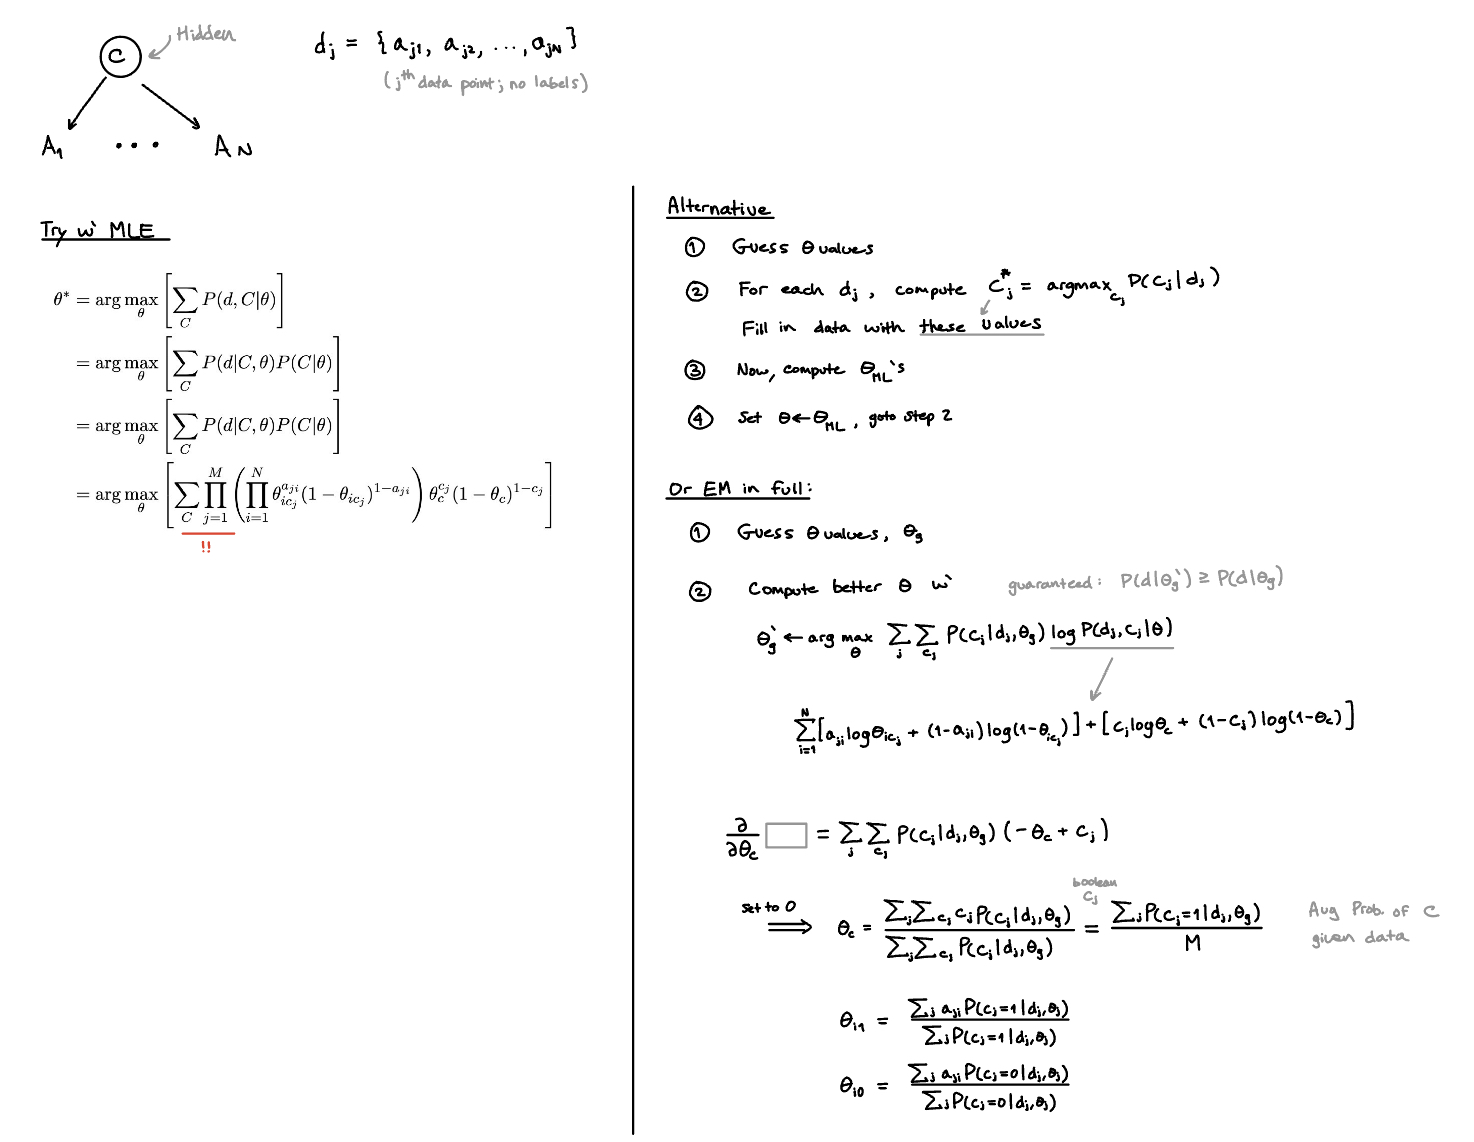 C
Hidden
d_j = {a_j1, a_j2, ..., a_jN}
(j^th data point; no labels)
A_1 ... A_N
Try w` MLE
θ* = arg max_θ [∑_C P(d, C|θ)]
= arg max_θ [∑_C P(d|C, θ)P(C|θ)]
= arg max_θ [∑_C P(d|C, θ)P(C|θ)]
= arg max_θ [∑_C ∏_{j=1}^{M} (∏_{i=1}^{N} θ_{ic_j}^{a_ji} (1 − θ_{ic_j})^{1−a_ji}) θ_c^{c_j} (1 − θ_c)^{1−c_j}]
!!
Alternative
① Guess θ values
② For each d_j, compute C_j^* = argmax_{c_j} P(c_j|d_j)
Fill in data with these values
③ Now, compute θ_ML's
④ Set θ ← θ_ML, goto step 2
Or EM in full:
① Guess θ values, θ_g
② Compute better θ w` guaranteed: P(d|θ_g`) ≥ P(d|θ_g)
θ_g` ← arg max_θ ∑_j ∑_{c_j} P(c_j|d_j, θ_g) log P(d_j, c_j|θ)
∑_{i=1}^{N} [a_ji log θ_{ic_j} + (1-a_ji) log(1-θ_{ic_j})] + [c_j log θ_c + (1-c_j) log(1-θ_c)]
∂/∂θ_c □ = ∑_j ∑_{c_j} P(c_j|d_j, θ_g) (-θ_c + c_j)
boolean c_j
set to 0 ⟹ θ_c = ∑_j ∑_{c_j} c_j P(c_j|d_j, θ_g) / ∑_j ∑_{c_j} P(c_j|d_j, θ_g) = ∑_j P(c_j=1|d_j, θ_g) / M
Avg Prob. of C
given data
θ_i1 = ∑_j a_ji P(c_j=1|d_j, θ_j) / ∑_j P(c_j=1|d_j, θ_j)
θ_i0 = ∑_j a_ji P(c_j=0|d_j, θ_j) / ∑_j P(c_j=0|d_j, θ_j)